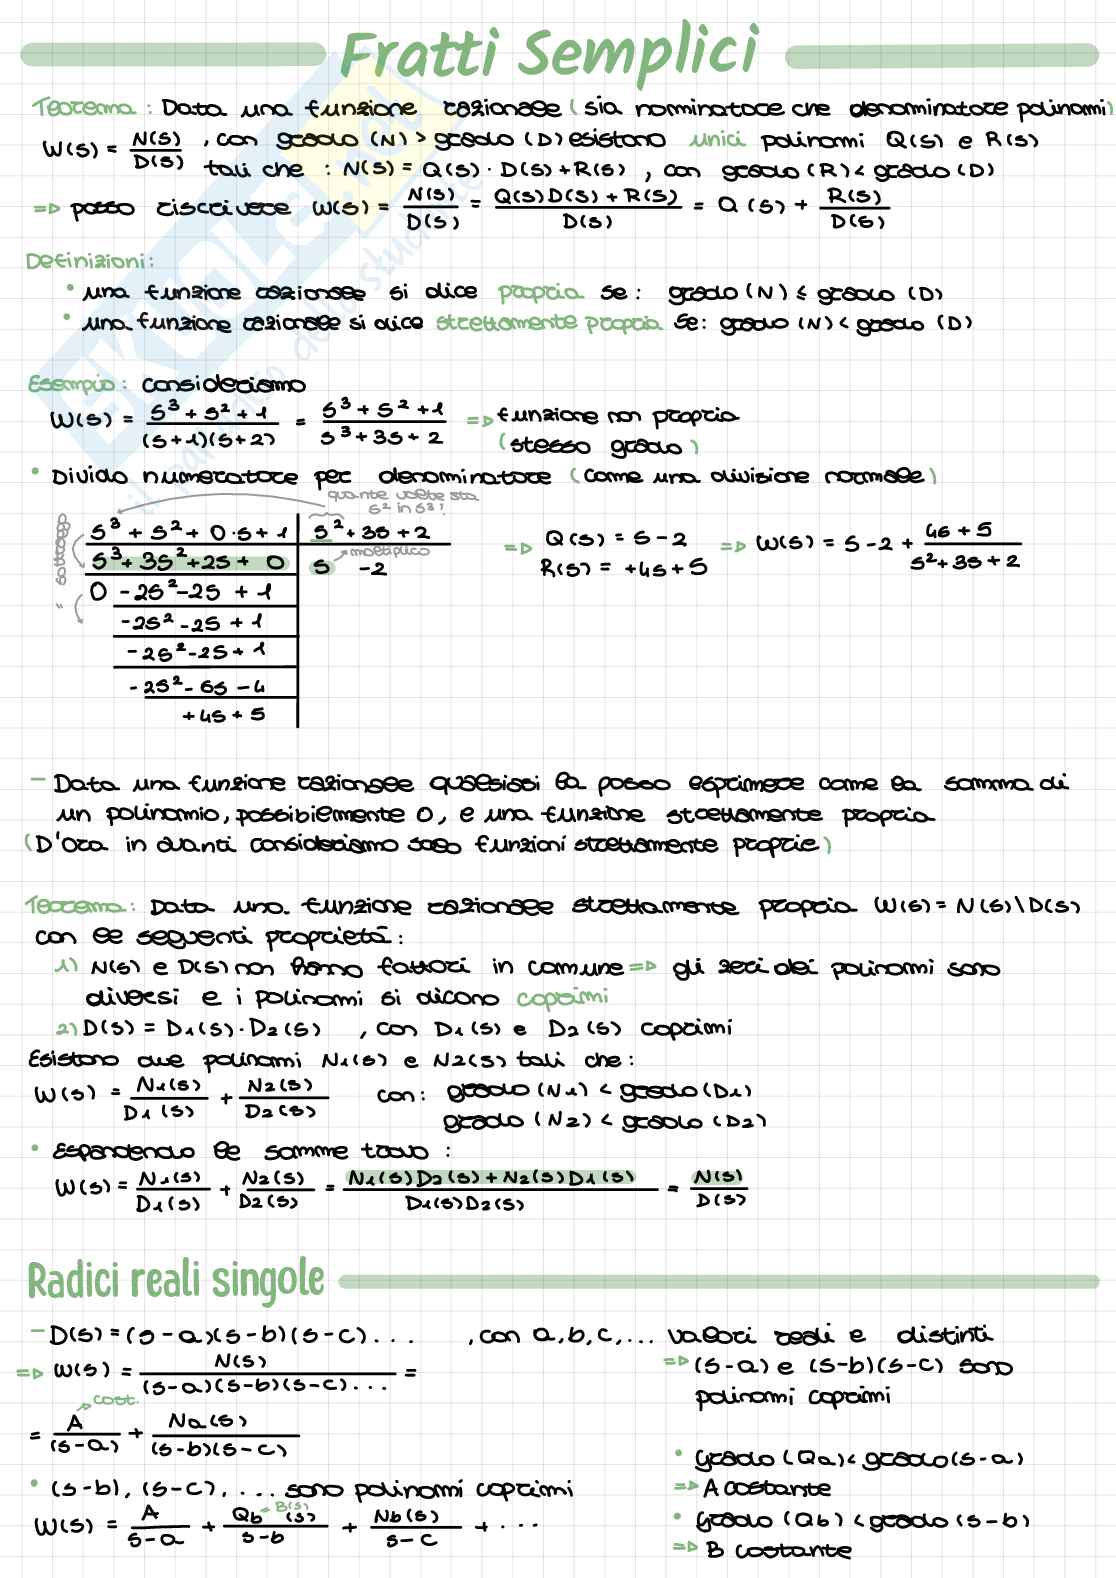 Fratti Semplici
Teorema : Data una funzione razionale ( sia nominatore che denominatore polinomi)
W(s) = N(s)/D(s) , con grado (N) > grado (D) esistono unici polinomi Q(s) e R(s)
tali che : N(s) = Q(s) · D(s) + R(s) , con grado (R) < grado (D)
=> posso riscrivere W(s) = N(s)/D(s) = Q(s)D(s) + R(s)/D(s) = Q(s) + R(s)/D(s)
Definizioni :
• una funzione razionale si dice propria se : grado (N) ≤ grado (D)
• una funzione razionale si dice strettamente propria se : grado (N) < grado (D)
Esempio : consideriamo
W(s) = s³ + s² + 1/(s+1)(s+2) = s³ + s² + 1/s³ + 3s + 2 => funzione non propria
(stesso grado)
• Divido numeratore per denominatore (come una divisione normale)
quante volte sta
s² in s³?
sottraggo
s³ + s² + 0·s + 1 | s² + 3s + 2
s³ + 3s² + 2s + 0 | s -2
moltiplico
"
0 - 2s² - 2s + 1
- 2s² - 2s + 1
- 2s² - 2s + 1
- 2s² - 6s - 4
+ 4s + 5
=> Q(s) = s - 2 => W(s) = s - 2 + 4s + 5/s² + 3s + 2
R(s) = +4s + 5
– Data una funzione razionale qualsiasi la posso esprimere come la somma di
un polinomio, possibilmente 0, e una funzione strettamente propria
(D'ora in avanti consideriamo solo funzioni strettamente proprie)
Teorema : Data una funzione razionale strettamente propria W(s) = N(s)\D(s)
con le seguenti proprietà :
1) N(s) e D(s) non hanno fattori in comune => gli zeri dei polinomi sono
diversi e i polinomi si dicono coprimi
2) D(s) = D1(s) · D2(s) , con D1(s) e D2(s) coprimi
Esistono due polinomi N1(s) e N2(s) tali che :
W(s) = N1(s)/D1(s) + N2(s)/D2(s) con : grado (N1) < grado (D1)
grado (N2) < grado (D2)
• Espandendo le somme trovo :
W(s) = N1(s)/D1(s) + N2(s)/D2(s) = N1(s)D2(s) + N2(s)D1(s)/D1(s)D2(s) = N(s)/D(s)
Radici reali singole
– D(s) = (s-a)(s-b)(s-c) ... , con a, b, c, ... valori reali e distinti
=> W(s) = N(s)/(s-a)(s-b)(s-c) ... =
=> (s-a) e (s-b)(s-c) sono
polinomi coprimi
cost.
= A/(s-a) + Na(s)/(s-b)(s-c)
• grado (Qa) < grado (s-a)
• (s-b), (s-c), ... sono polinomi coprimi
=> A costante
B(s)
W(s) = A/s-a + Qb(s)/s-b + Nb(s)/s-c + ...
• grado (Qb) < grado (s-b)
=> B costante